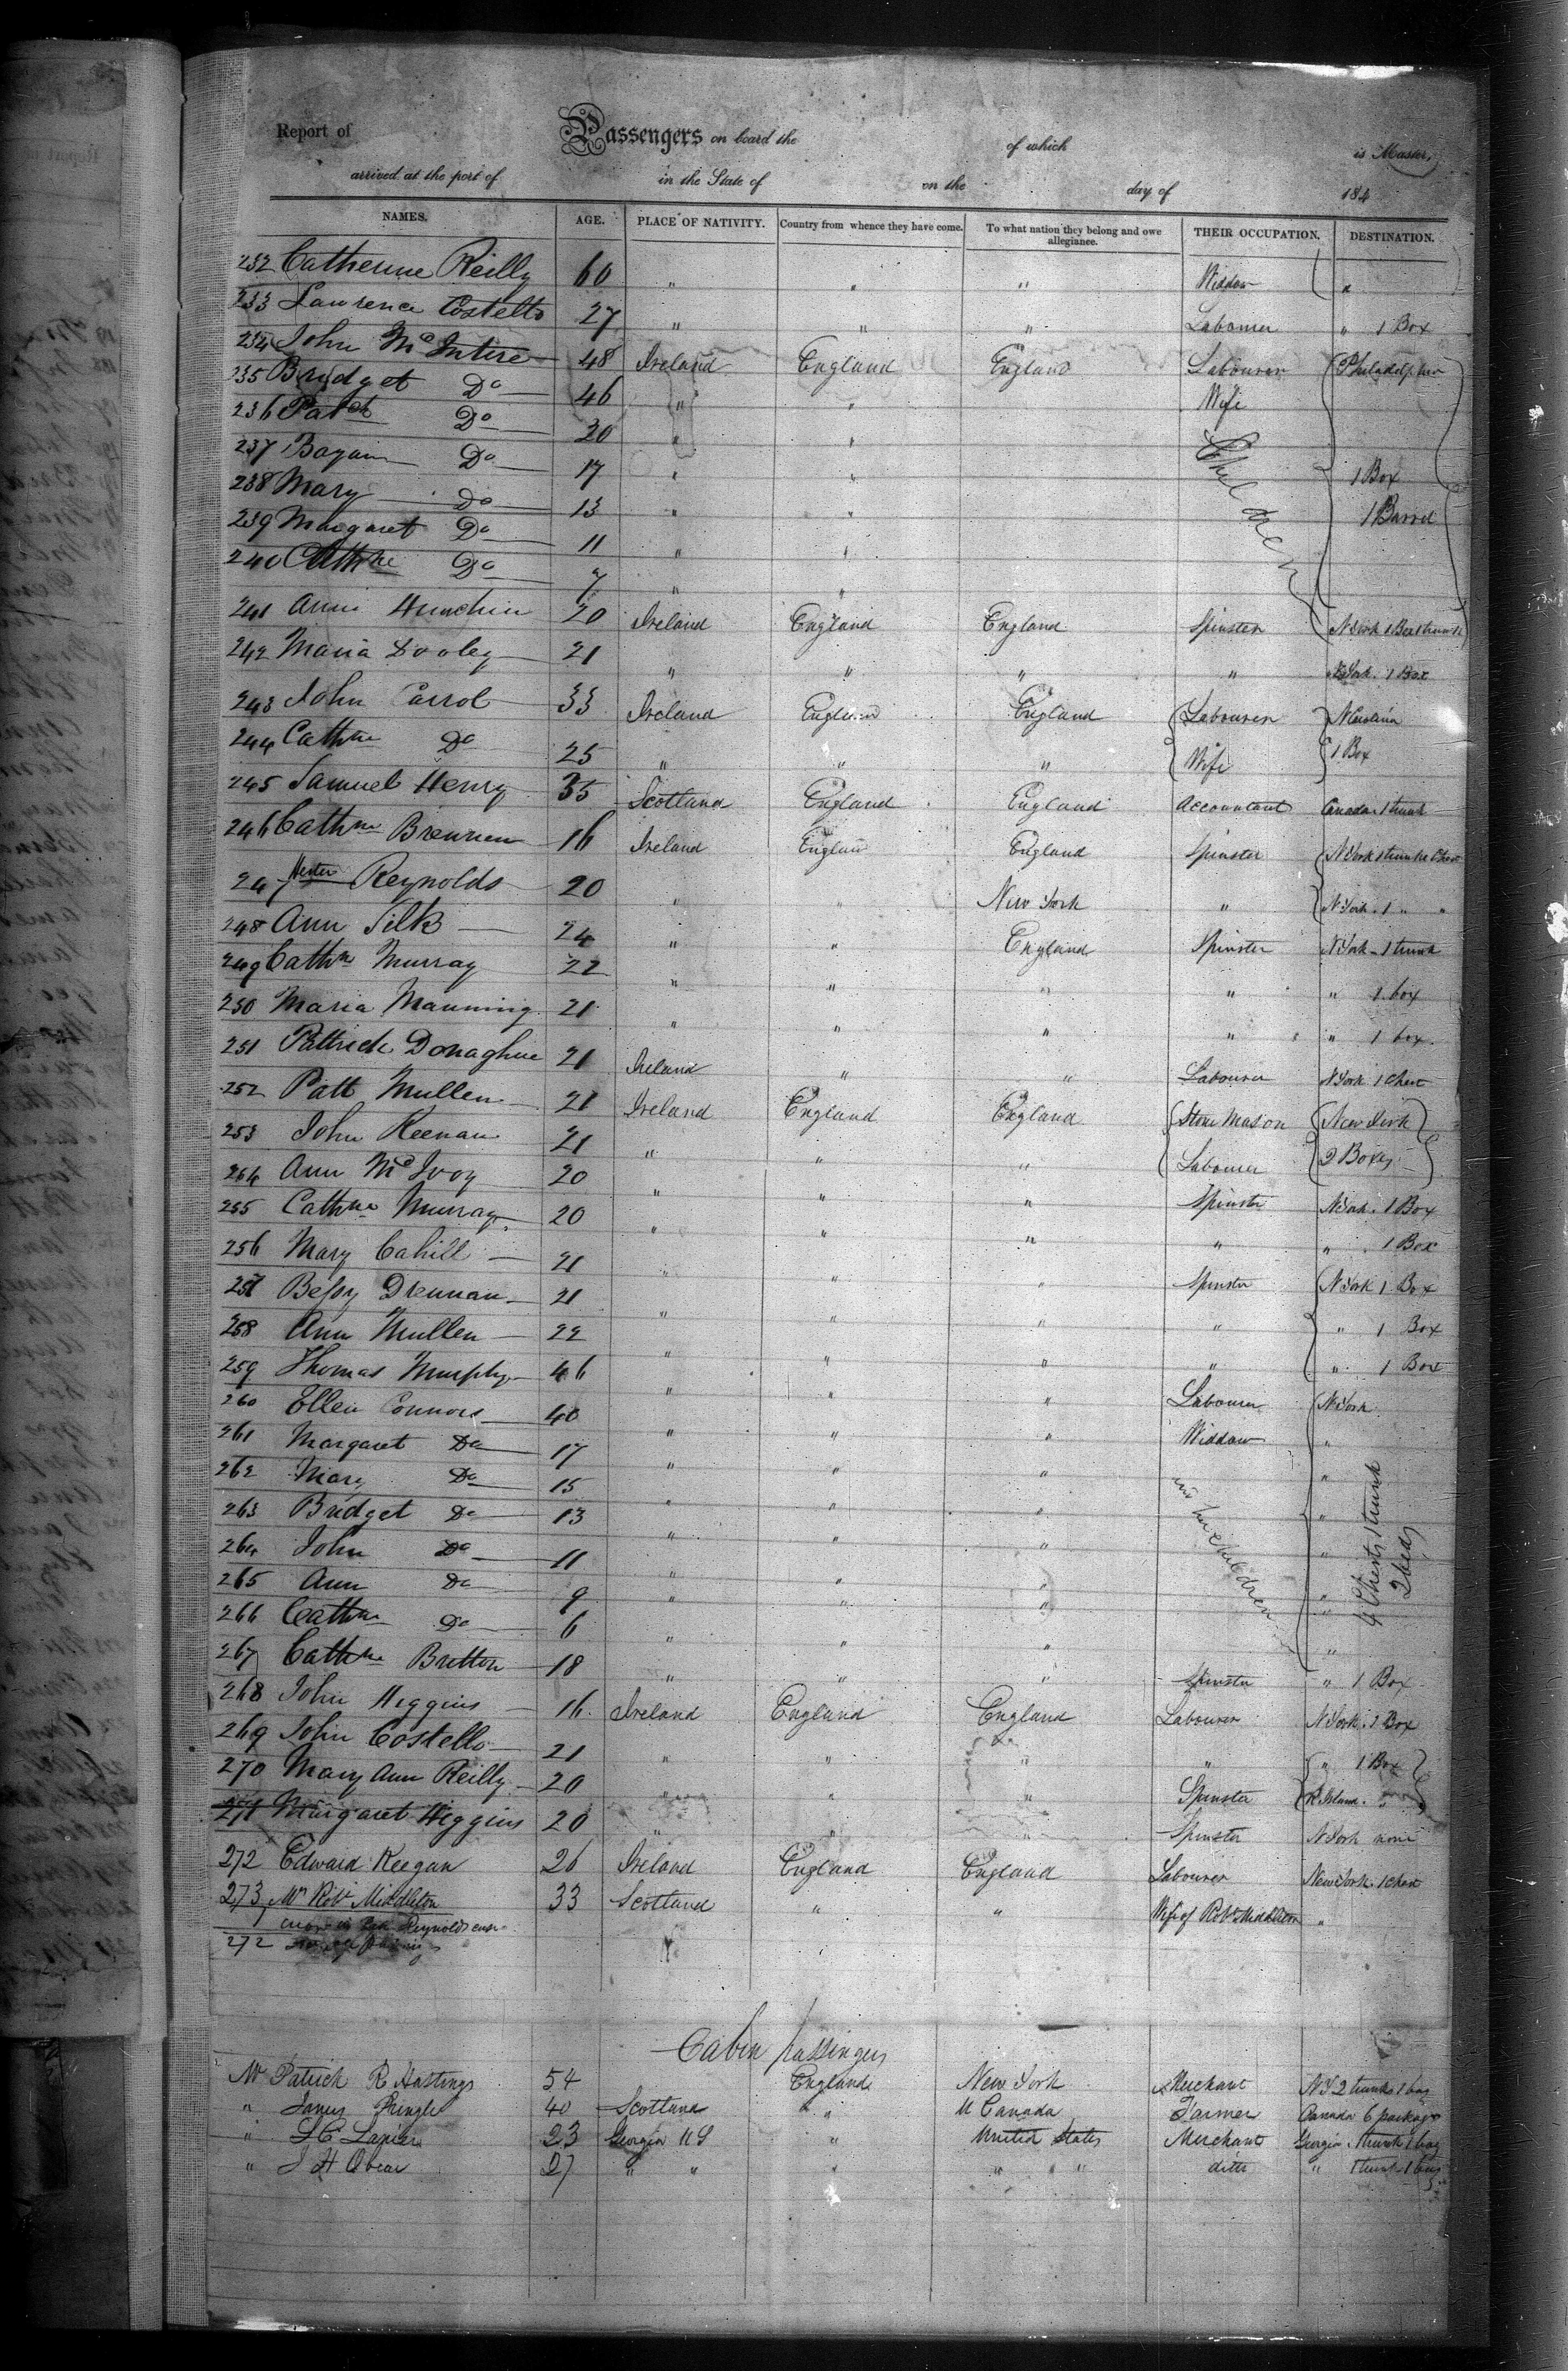 Report of Passengers on board the of which is Master,
arrived at the port of in the State of on the day of 184
NAMES. AGE. PLACE OF NATIVITY. Country from whence they have come. To what nation they belong and owe allegiance. THEIR OCCUPATION. DESTINATION.
232 Catherine Reilly 60 " " " Widdow "
233 Lawrence Costello 27 " " " Labourer " 1 Box
234 John McIntire 48 Ireland England England Labourer Philadelphia
235 Bridget Do 46 " " Wife
236 Patck Do 20 " "
237 Do 17 " " Children 1 Box
238 Mary Do 13 " " 1 Barrel
239 Margaret Do 11 " "
240 Cathne Do 7 " "
241 Ann 20 Ireland England England Spinster N York
242 Maria Dooley 21 " " " " N York. 1 Box
243 John Carrol 33 Ireland England England Labourer N Carolina
244 Cathne Do 25 " " " Wife 1 Box
245 Samuel Henry 35 Scotland England England Accountant Canada 1 trunk
246 Cathne Brennen 16 Ireland England England Spinster N York
247 Hester Reynolds 20 " " New York " N York. 1 " "
248 Ann Silk 24 " " England Spinster N York - 1 trunk
249 Cathne Murray 22 " " " " " 1 box
250 Maria Manning 21 " " " " " 1 box
251 Pattrick Donaghue 21 Ireland " " Labourer N York 1 Chest
252 Patt Mullen 21 Ireland England England Stone Mason New York
253 John Keenan 21 " " " Labourer 2 Boxes
254 Ann McIvoy 20 " " " Spinster N York. 1 Box
255 Cathne Murray 20 " " " " " 1 Box
256 Mary Cahill 21 " " " Spinster N York 1 Box
257 Bessy Drennan 21 " " " " " 1 Box
258 Ann Mullen 22 " " " " " 1 Box
259 Thomas Murphy 46 " " " Labourer N York
260 Ellen Connors 40 " " " Widdow "
261 Margaret Do 17 " " " "
262 Mary Do 15 " " " "
263 Bridget Do 13 " " " children " 4 Chests 1 trunk 2 beds
264 John Do 11 " " " "
265 Ann Do 9 " " " "
266 Cathne Do 6 " " " "
267 Cathne Britton 18 " " " Spinster " 1 Box
268 John Higgins 16 Ireland England England Labourer N York. 1 Box
269 John Costello 21 " " " " " 1 Box
270 Mary Ann Reilly 20 " " " Spinster R Island. "
271 Margaret Higgins 20 " " " Spinster N York none
272 Edward Keegan 26 Ireland England England Labourer New York. 1 Chest
273 Mrs Robt Middleton 33 Scotland " " Wife of Robt Middleton "
Reynolds
272
Cabin passingers
Mr Patrick R Hastings 54 England New York Merchant N Y 2 trunks 1 bag
" James Pringle 40 Scotland " U Canada Farmer Canada 6 packages
" L C Lanier 23 Georgia U S " United States Merchant Georgia. 1 trunk 1 bag
" J H Obear 27 " " " " " " ditto " 1 trunk 1 bag